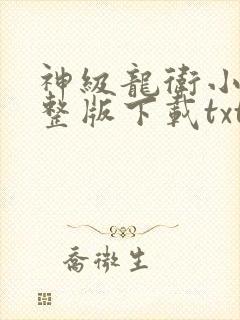 神級龍衛小
整版下載txt
喬微生